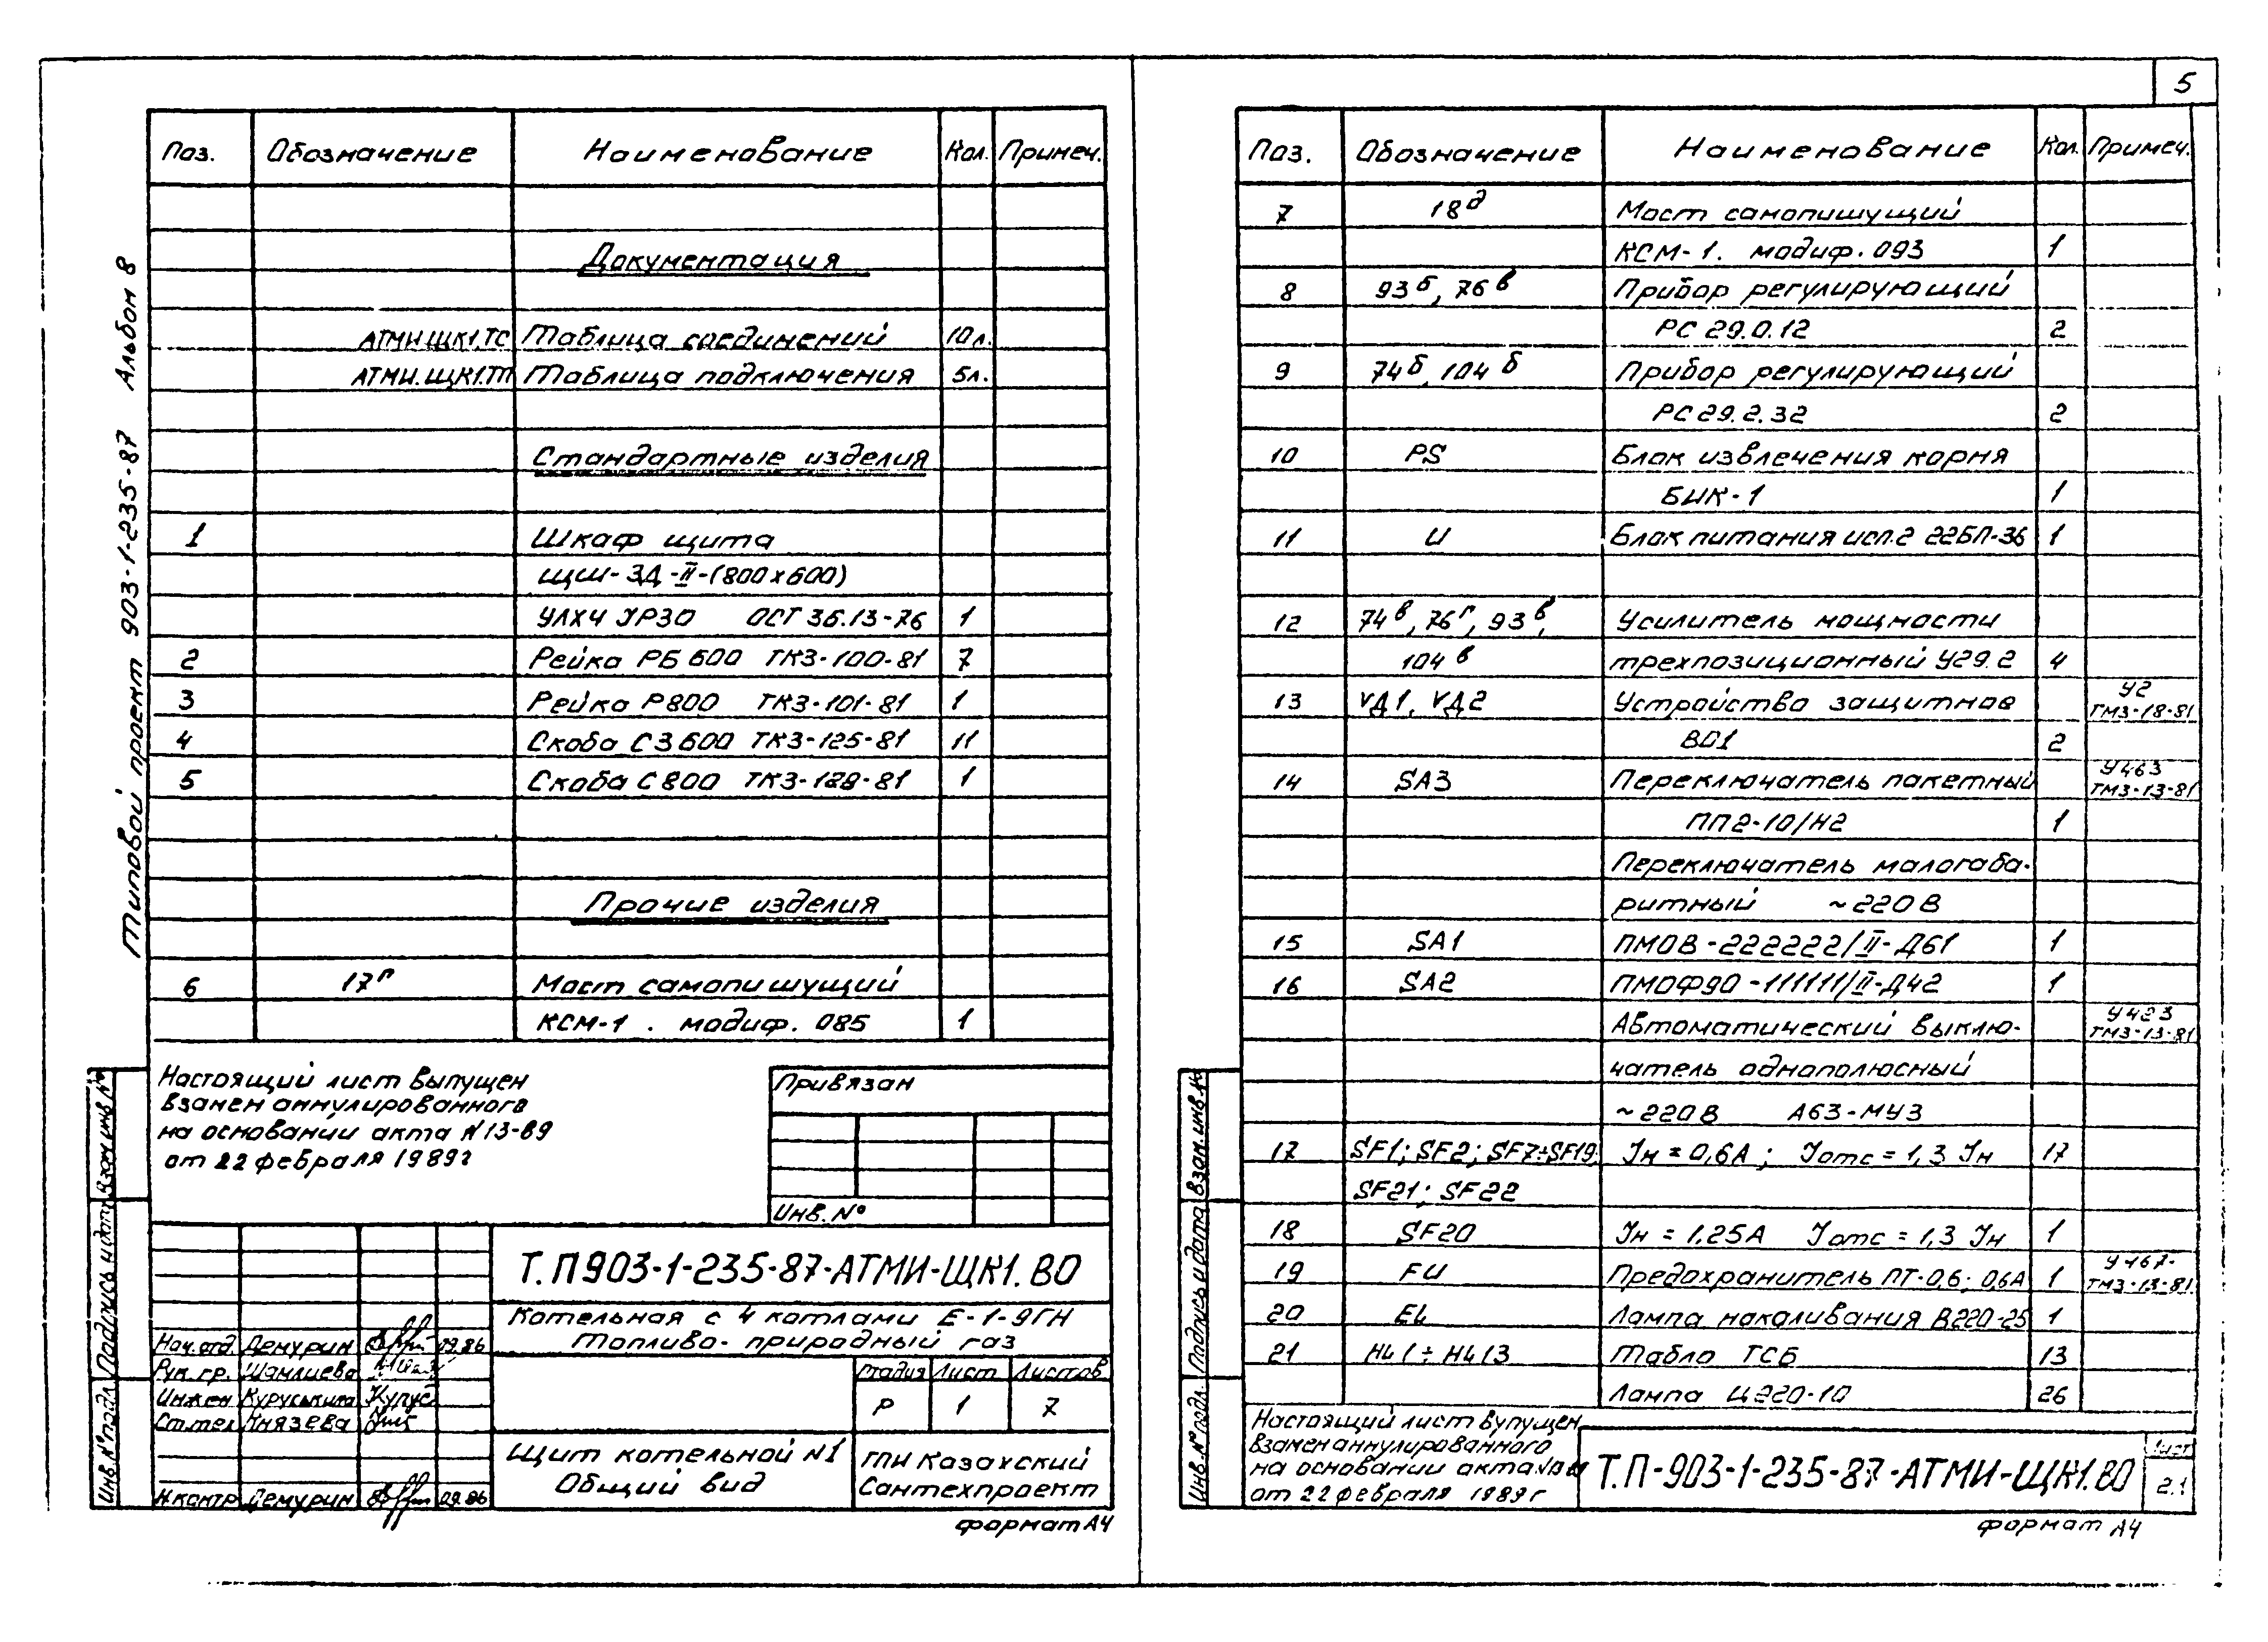 5
Типовой проект 903-1-235-87 Альбом 8
Поз. Обозначение Наименование Кол. Примеч.
Документация
АТМИ.ЩК1.ТС Таблица соединений 10л.
АТМИ.ЩК1.ТП Таблица подключения 5л.
Стандартные изделия
1 Шкаф щита
ЩШ-ЗД-II-(800х600)
УЛХЧ IР30 ОСТ 36.13-76 1
2 Рейка РБ 600 ТК3-100-81 7
3 Рейка Р800 ТК3-101-81 1
4 Скоба С3600 ТК3-125-81 11
5 Скоба С800 ТК3-128-81 1
Прочие изделия
6 17г Мост самопишущий
КСМ-1. модиф. 085 1
Настоящий лист выпущен
взамен аннулированного
на основании акта N13-89
от 22 февраля 1989г
Привязан
Инв. №
Взам инв №
Подпись и дата
Инв. № подл.
Т.П903-1-235-87-АТМИ-ЩК1.ВО
Котельная с 4 котлами Е-1-9ГН
Топливо-природный газ
Нач.отд. Демурин 09.86
Рук. гр. Шамлиева
Инжен
Ст.тех Князева
Н.контр Демурин 09.86
Стадия Лист Листов
Р 1 7
Щит котельной N1
Общий вид
ГПИ Казахский
Сантехпроект
формат А4
Поз. Обозначение Наименование Кол. Примеч.
7 18д Мост самопишущий
КСМ-1. модиф. 093 1
8 93б, 76в Прибор регулирующий
РС 29.0.12 2
9 74б, 104б Прибор регулирующий
РС29.2.32 2
10 PS Блок извлечения корня
БИК-1 1
11 U Блок питания исп.2 22БП-36 1
12 74в, 76г, 93в, Усилитель мощности
104в трехпозиционный У29.2 4
13 VД1, VД2 Устройство защитное У2 ТМ3-18-81
ВО1 2
14 SA3 Переключатель пакетный У463 ТМ3-13-81
ПП2-10/Н2 1
Переключатель малогаба-
ритный ~220В
15 SA1 ПМОВ-222222/II-Д61 1
16 SA2 ПМОФ90-111111/II-Д42 1
Автоматический выклю- У423 ТМ3-13-81
чатель однополюсный
~220В А63-МУ3
17 SF1; SF2; SF7÷SF19; Iн = 0,6А; Iотс = 1,3 Iн 17
SF21; SF22
18 SF20 Iн = 1,25А Iотс = 1,3 Iн 1
19 FU Предохранитель ПТ-0,6; 0,6А 1 У467- ТМ3-13-81
20 EL Лампа накаливания В220-25 1
21 HL1÷HL13 Табло ТСБ 13
Лампа Ц220-10 26
Взам. инв.№
Подпись и дата
Инв. № подл.
Настоящий лист выпущен
взамен аннулированного
на основании акта
от 22 февраля 1989г
Т.П-903-1-235-87-АТМИ-ЩК1.ВО
Лист
2.1
формат А4